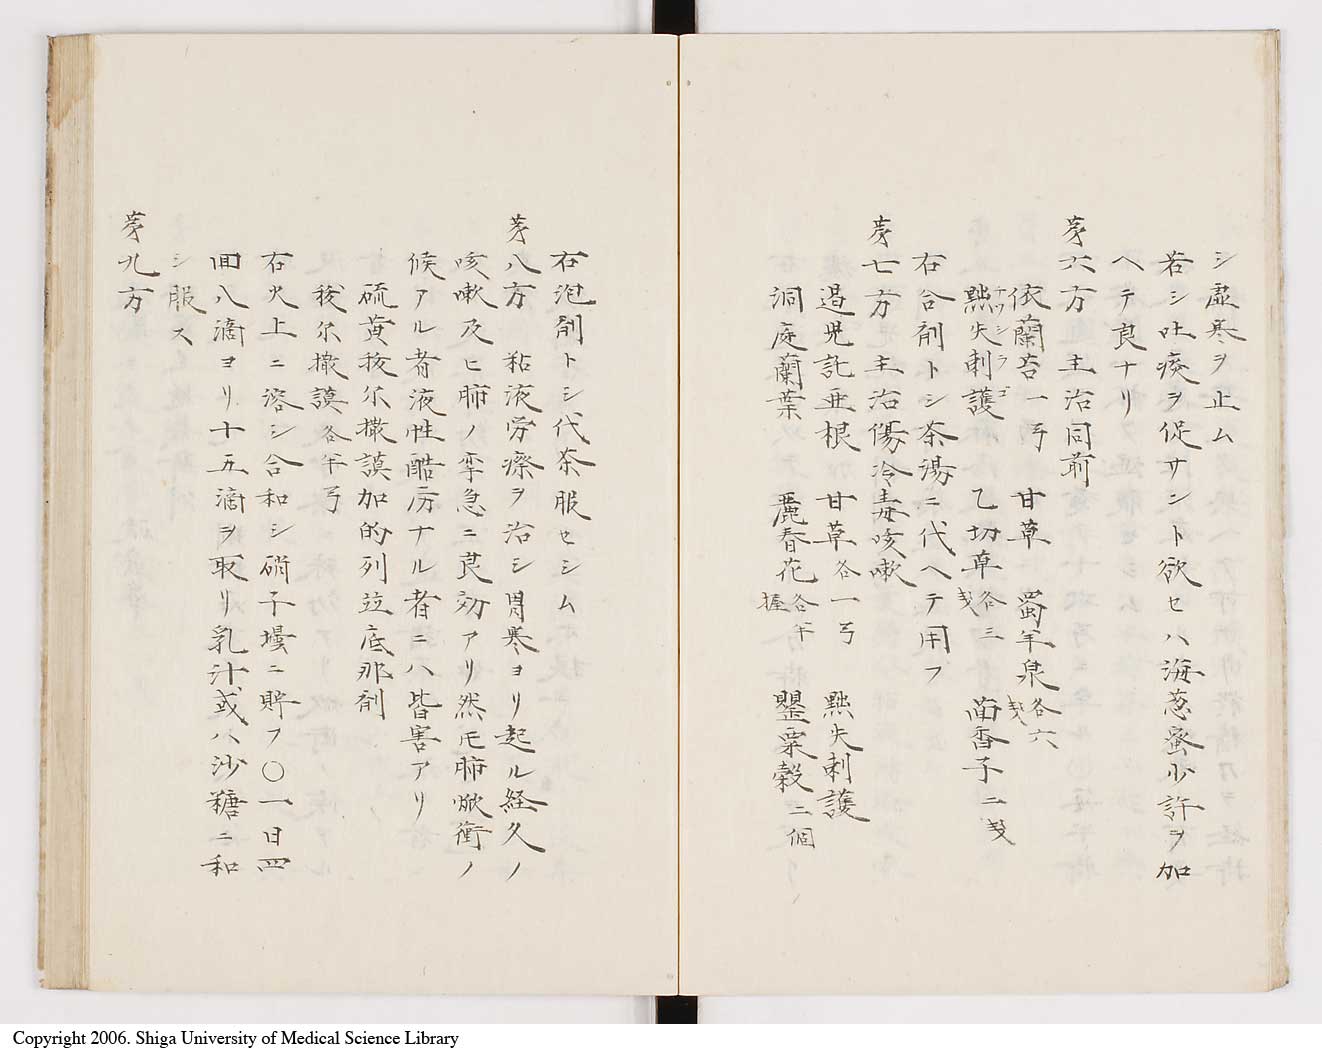 シ虚寒ヲ止ム
若シ吐痰ヲ促サント欲セハ海葱蜜少許ヲ加
ヘテ良ナリ
第六方 主治同前
依蘭苔一弓 甘草 蜀羊泉各六戔
點失剌護 乙切草各三戔 茴香子二戔
右合剤トシ茶湯ニ代ヘテ用フ
第七方 主治傷冷毒咳嗽
遏児託亜根 甘草各一弓 點失剌護
洞庭蘭葉 麗春花各半握 罌粟殻二個
右泡剤トシ代茶服セシム
第八方 粘液労瘵ヲ治シ胃寒ヨリ起ル経久ノ
咳嗽及ヒ肺ノ攣急ニ良効アリ然モ肺焮衝ノ
候アル者液性酷厉ナル者ニハ皆害アリ
硫黄拔尓撒謨加的列竝底那剤
拔尓撒謨各半弓
右火上ニ溶シ合和シ硝子壜ニ貯フ〇一日四
回八滴ヨリ十五滴ヲ取リ乳汁或ハ沙糖ニ和
シ服ス
第九方
Copyright 2006. Shiga University of Medical Science Library